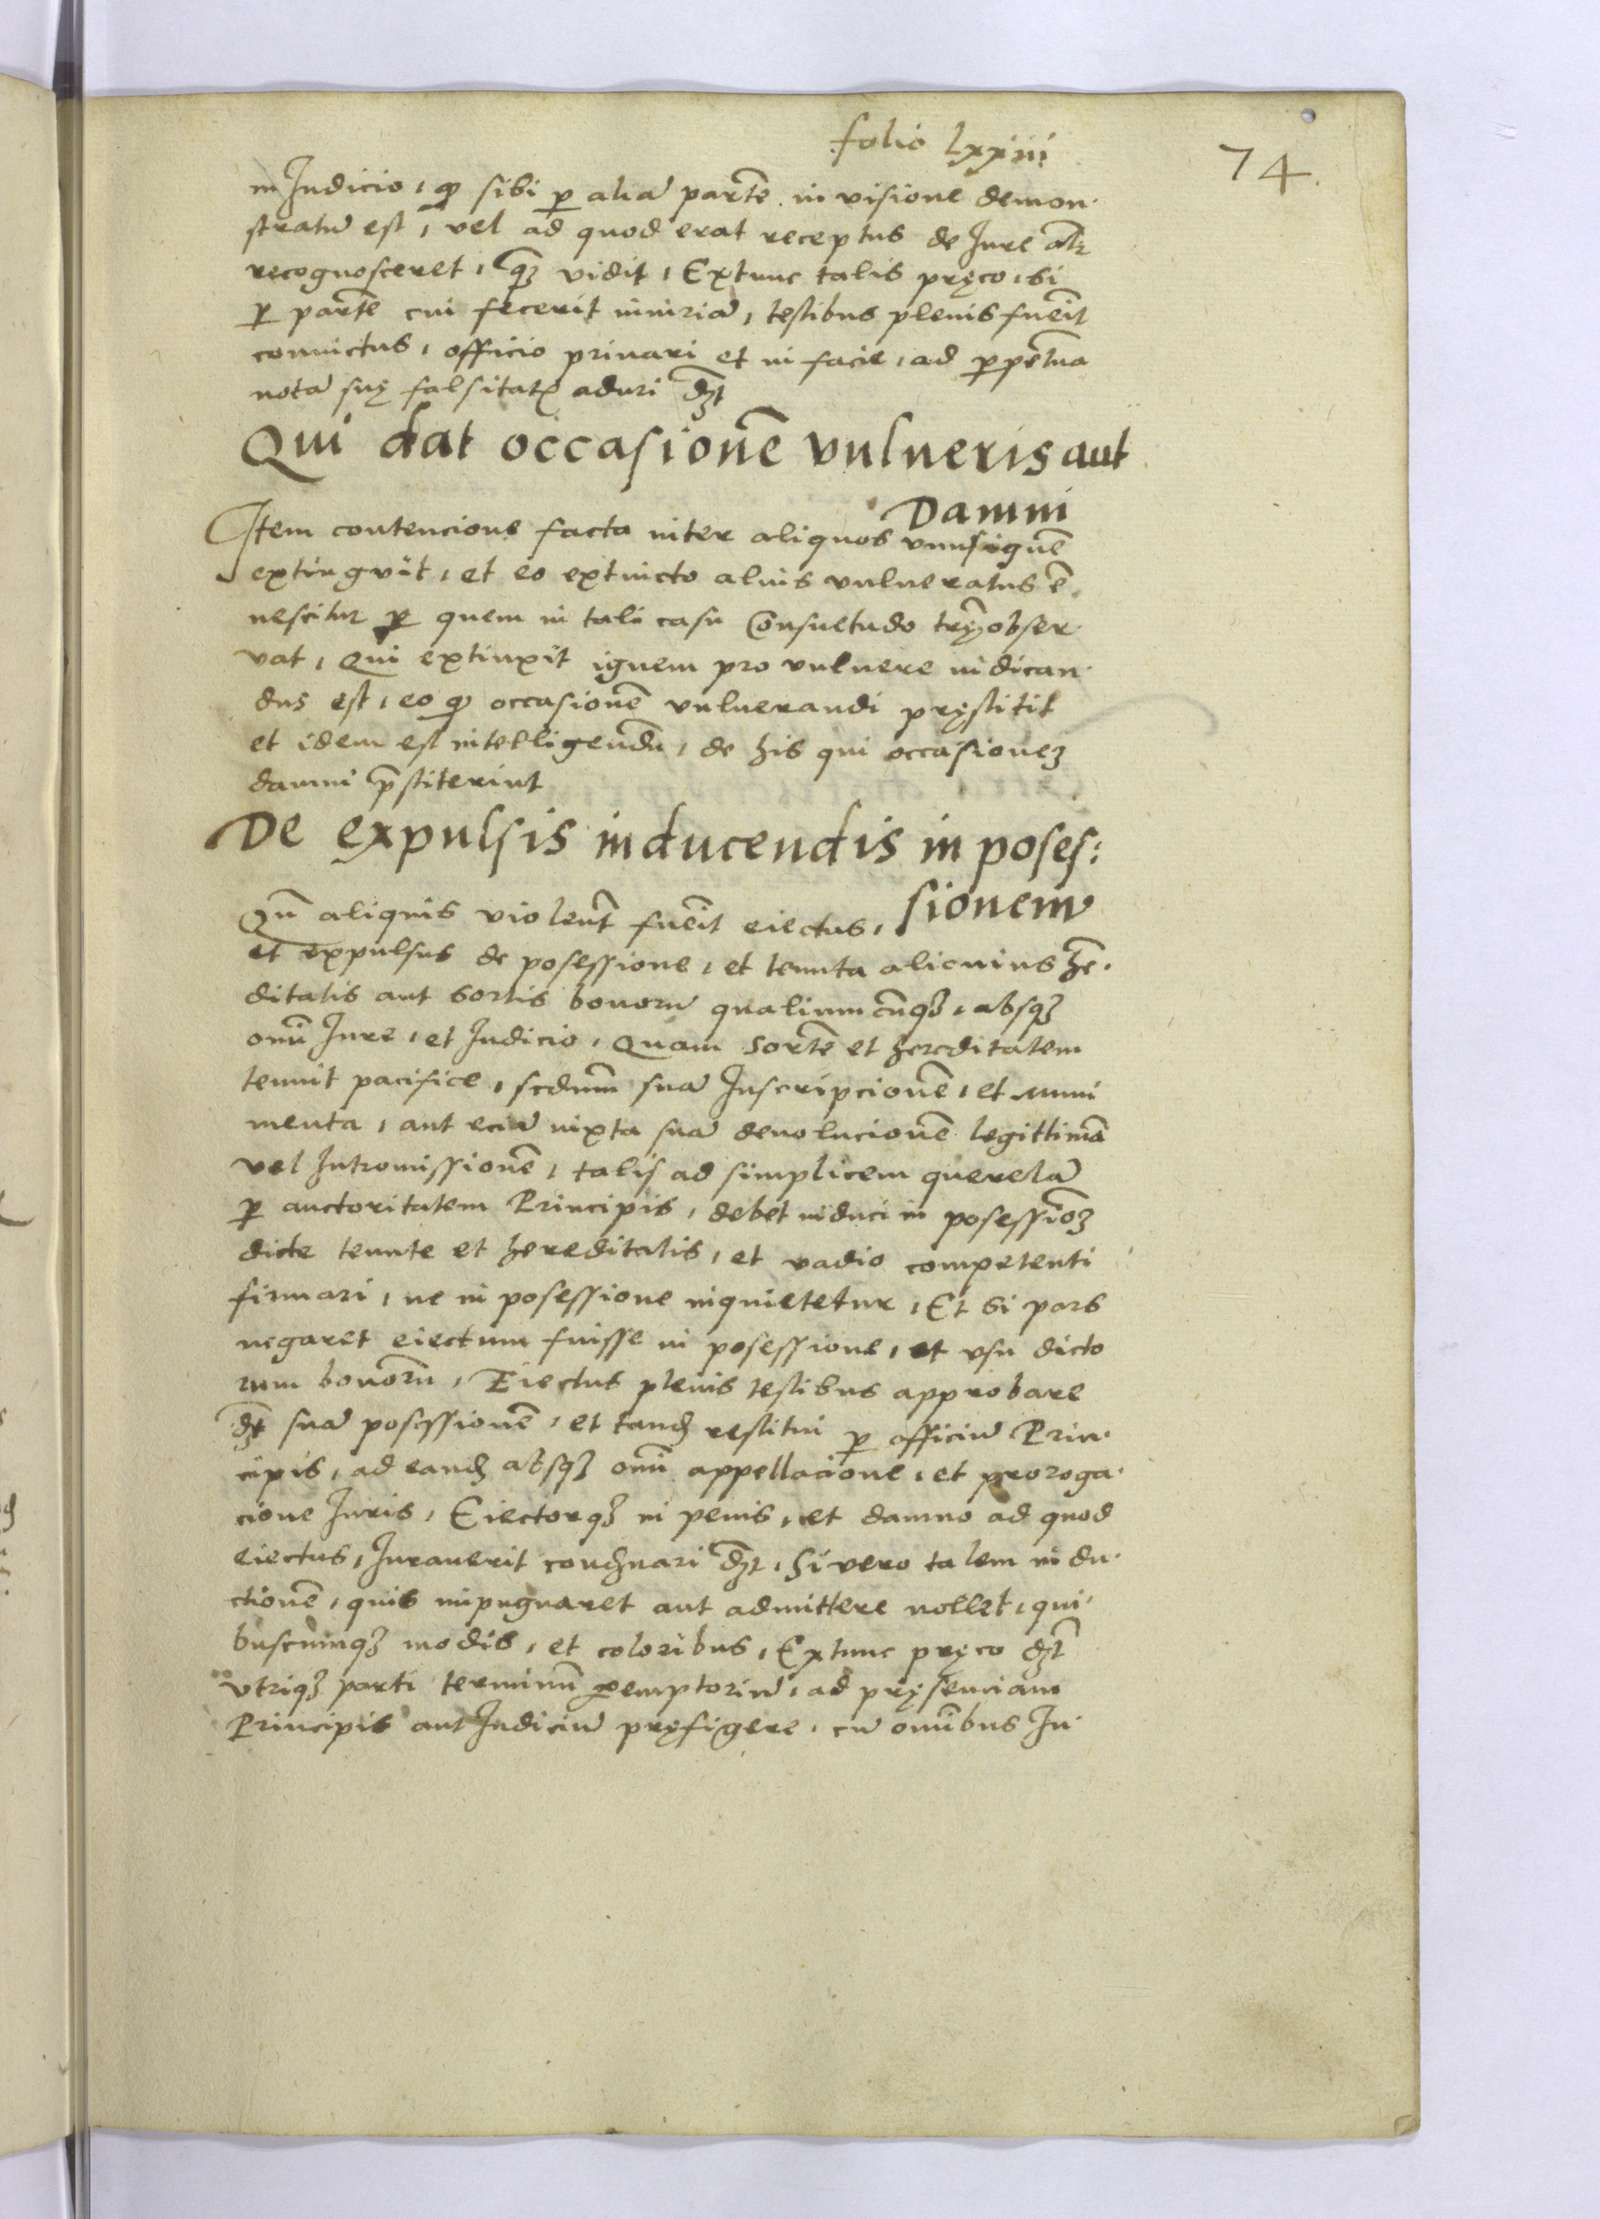 folio lxxiiij
74.
in Judicio, qđ sibi ꝑ aliā partē in visione demon
stratū est, vel ad quod erat receptus de Jure alr̄
recognosceret, qꝫ vidit, Extunc talis pręco, si
ꝑ partē cui fecerit iniuriā, testibus plenis fuēit
conuictus, officio priuari et in facie, ad ꝑpetua
notā suę falsitatꝭ aduri dꝫt
Qui dat occasionē vulneris aut
Damni
Item contencione facta inter aliquos vnus ignē
extinguit, et eo extincto alius vulneratus ē
nescitur ꝑ quem in tali casu Consuetudo trę obser
vat, Qui extinxit ignem pro vulnere iudican
dus est, eo qđ occasionē vulnerandi pręstitit
et idem est intelligendū, de his qui occasioneꝫ
damni p̄stiterint
De expulsis inducendis in poses:
sionem
Qn̄ aliquis violent̄ fuēit eiectus,
et expulsus de posessione, et tenuta alicuius he
ditatis aut sortis bonorū qualiumcūqꝫ, absqꝫ
omī Jure, et Judicio, Quam sortē et hereditatem
tenuit pacifice, scdum̄ suā Inscripcionē, et muni
menta, aut eciā iuxta suā deuolucionē legittimā
vel Intromissionē, talis ad simplicem querelā
ꝑ auctoritatem Principis, debet induci in posessionꝫ
dicte tenute et hereditatis, et vadio competenti
firmari, ne in posessione inquietetur, Et si pars
negaret eiectum fuisse in posessione, et vsu dicto
rum bonorū, Eiectus plenis testibus approbare
dꝫt suā posessionē, et tandꝫ restitui ꝑ officiū Prin
cipis, ad eandꝫ absqꝫ omī appellacione, et proroga
cione Juris, Eiectorqꝫ in penis, et damno ad quod
eiectus, Jurauerit condꝫnari dꝫt, Si vero talem indu
ctionē, quis impugnaret aut admittere nollet, qui
buscumqꝫ modis, et coloribus, Extunc pręco dꝫt
vtriqꝫ parti terminū ꝑemptoriū, ad pręsenciam
Principis aut Judiciū pręfigere, cū omībus In